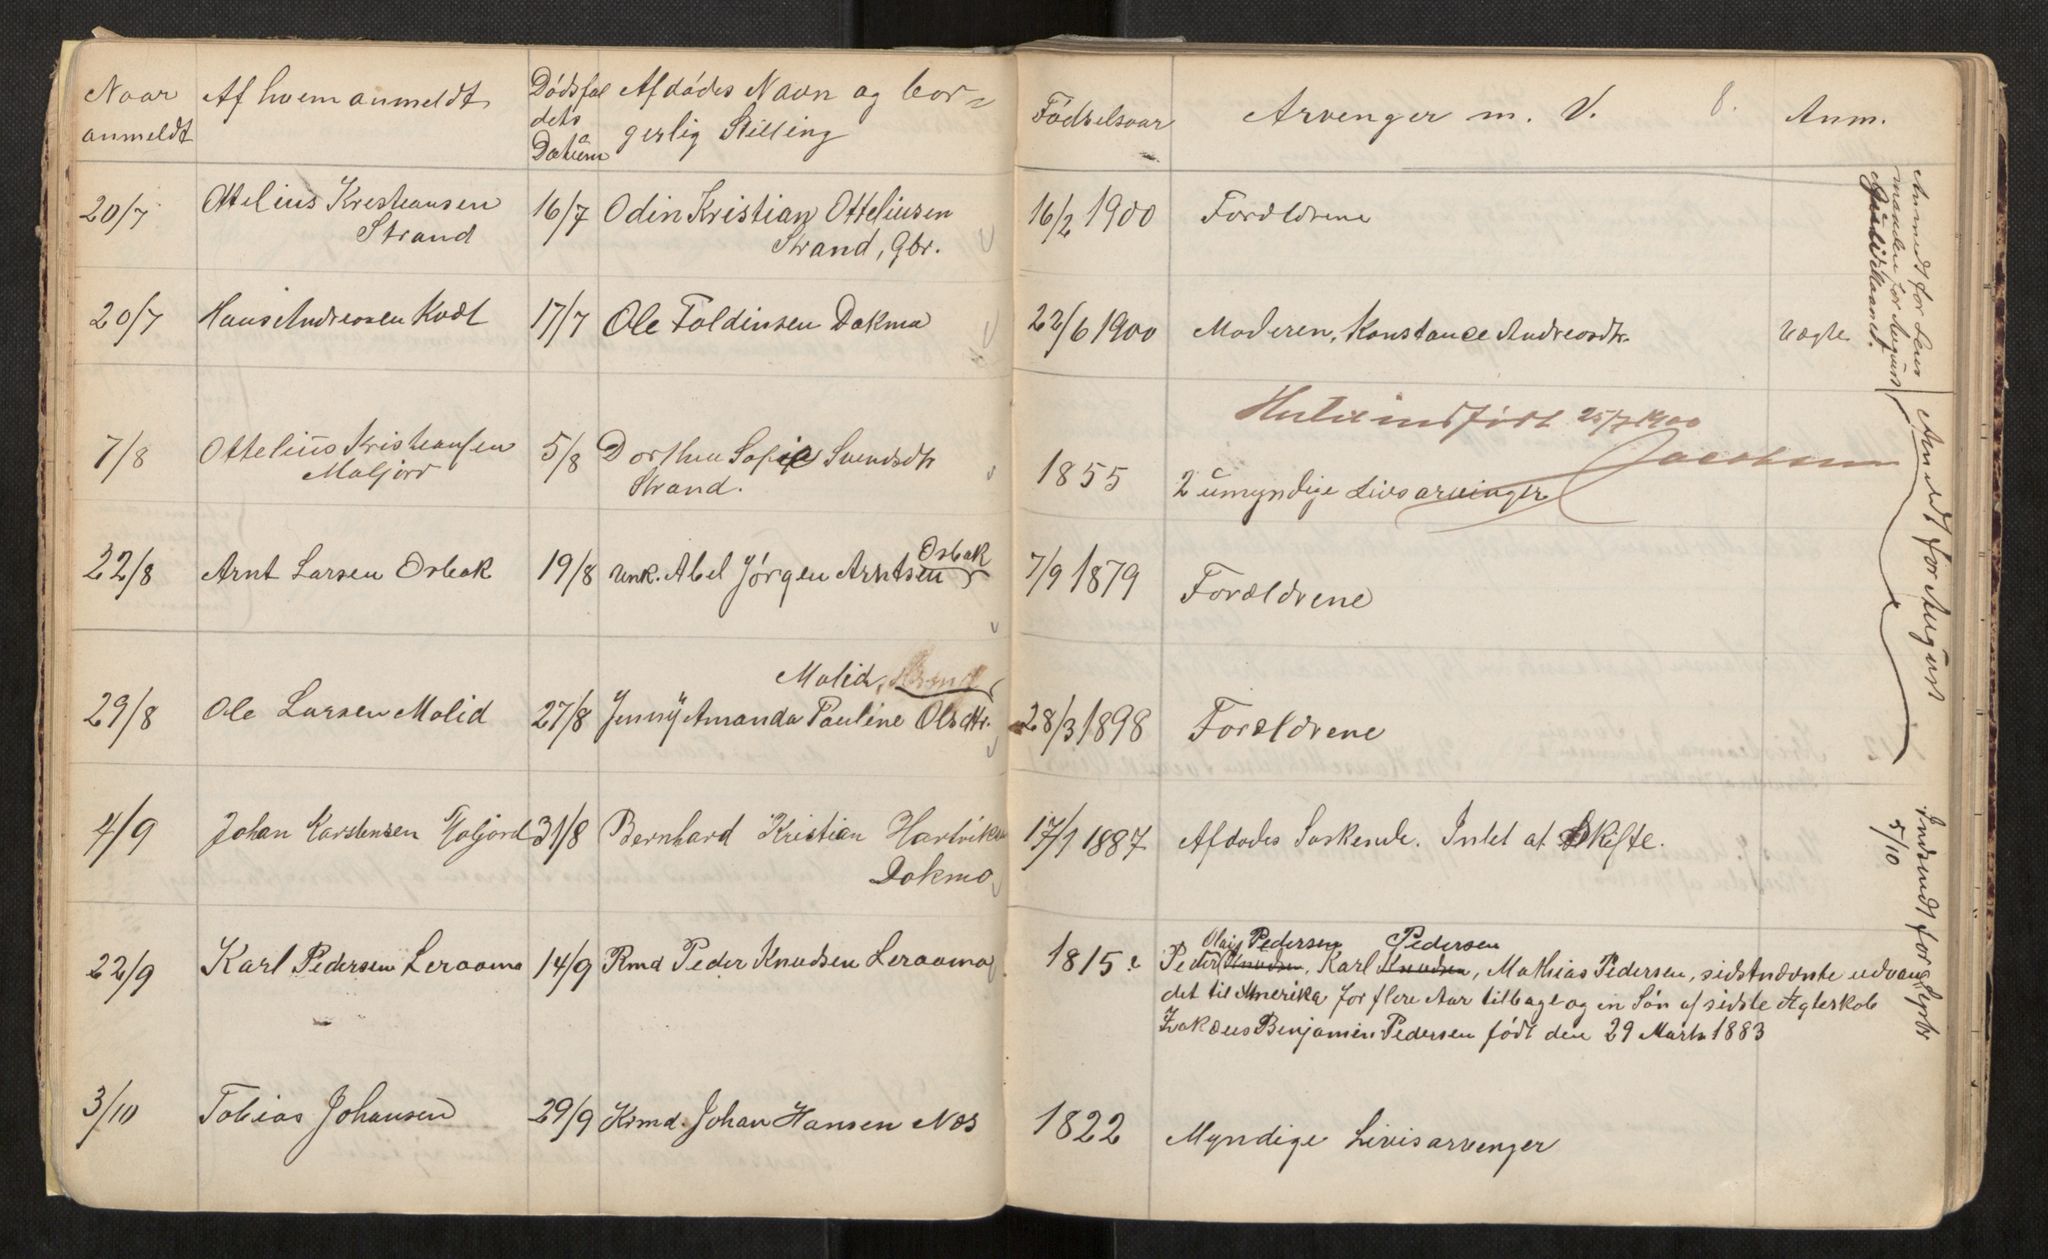 Naar
anmeldt
Af hvem anmeldt
Dødsfal
dets
Datum
Afdødes Navn og bor-
gerlig Stilling
Fødselsaar
Arvenger m. V.
8.
Anm.
20/7
Ottelius Kristiansen
Strand
16/7
Odin Kristian Otteliusen
Strand, Gbr.
16/2 1900
Forældrene
20/7
Hans Andreasen Kvæl
17/7
Ole Foldinsen Dokmo
22/6 1900
Moderen, Konstance Andreasdtr.
Uægte
Hertil indført 25/7 1900
Jacobsen
7/8
Ottelius Kristiansen
Maljord
5/8
Dorthea Sofie Svendsdtr
Strand.
1855
2 umyndige Livsarvinger
22/8
Arnt Larsen Osbak
19/8
Osbak
Unk. Abel Jørgen Arntsen
7/9 1879
Forældrene
29/8
Ole Larsen Molid
27/8
Molid,
Jenny Amanda Pauline Olsdtr.
28/3 1898
Forældrene
4/9
Johan Karstensen Maljord
31/8
Bernhard Kristian Hartviksen
Dokmo
17/1 1887
Afdødes Søskende. Intet at skifte.
22/9
Karl Pedersen Leraamo
14/9
Kmd Peder Knudsen Leraamo
1815.
Olai Pedersen Pedersen
Peder Knudsen, Karl Knudsen, Mathias Pedersen, sidstnævnte udvan
det til Amerika for flere Aar tilbage og en Søn af sidste Ægteskab
Zakæus Benjamin Pedersen født den 29 Marts 1883
3/10
Tobias Johansen
29/9
Krmd. Johan Hansen Næs
1822
Myndige Livsarvenger
Anmedt for Lens
manden for August
Anmedt for August
Indsendt for Septbr
5/10